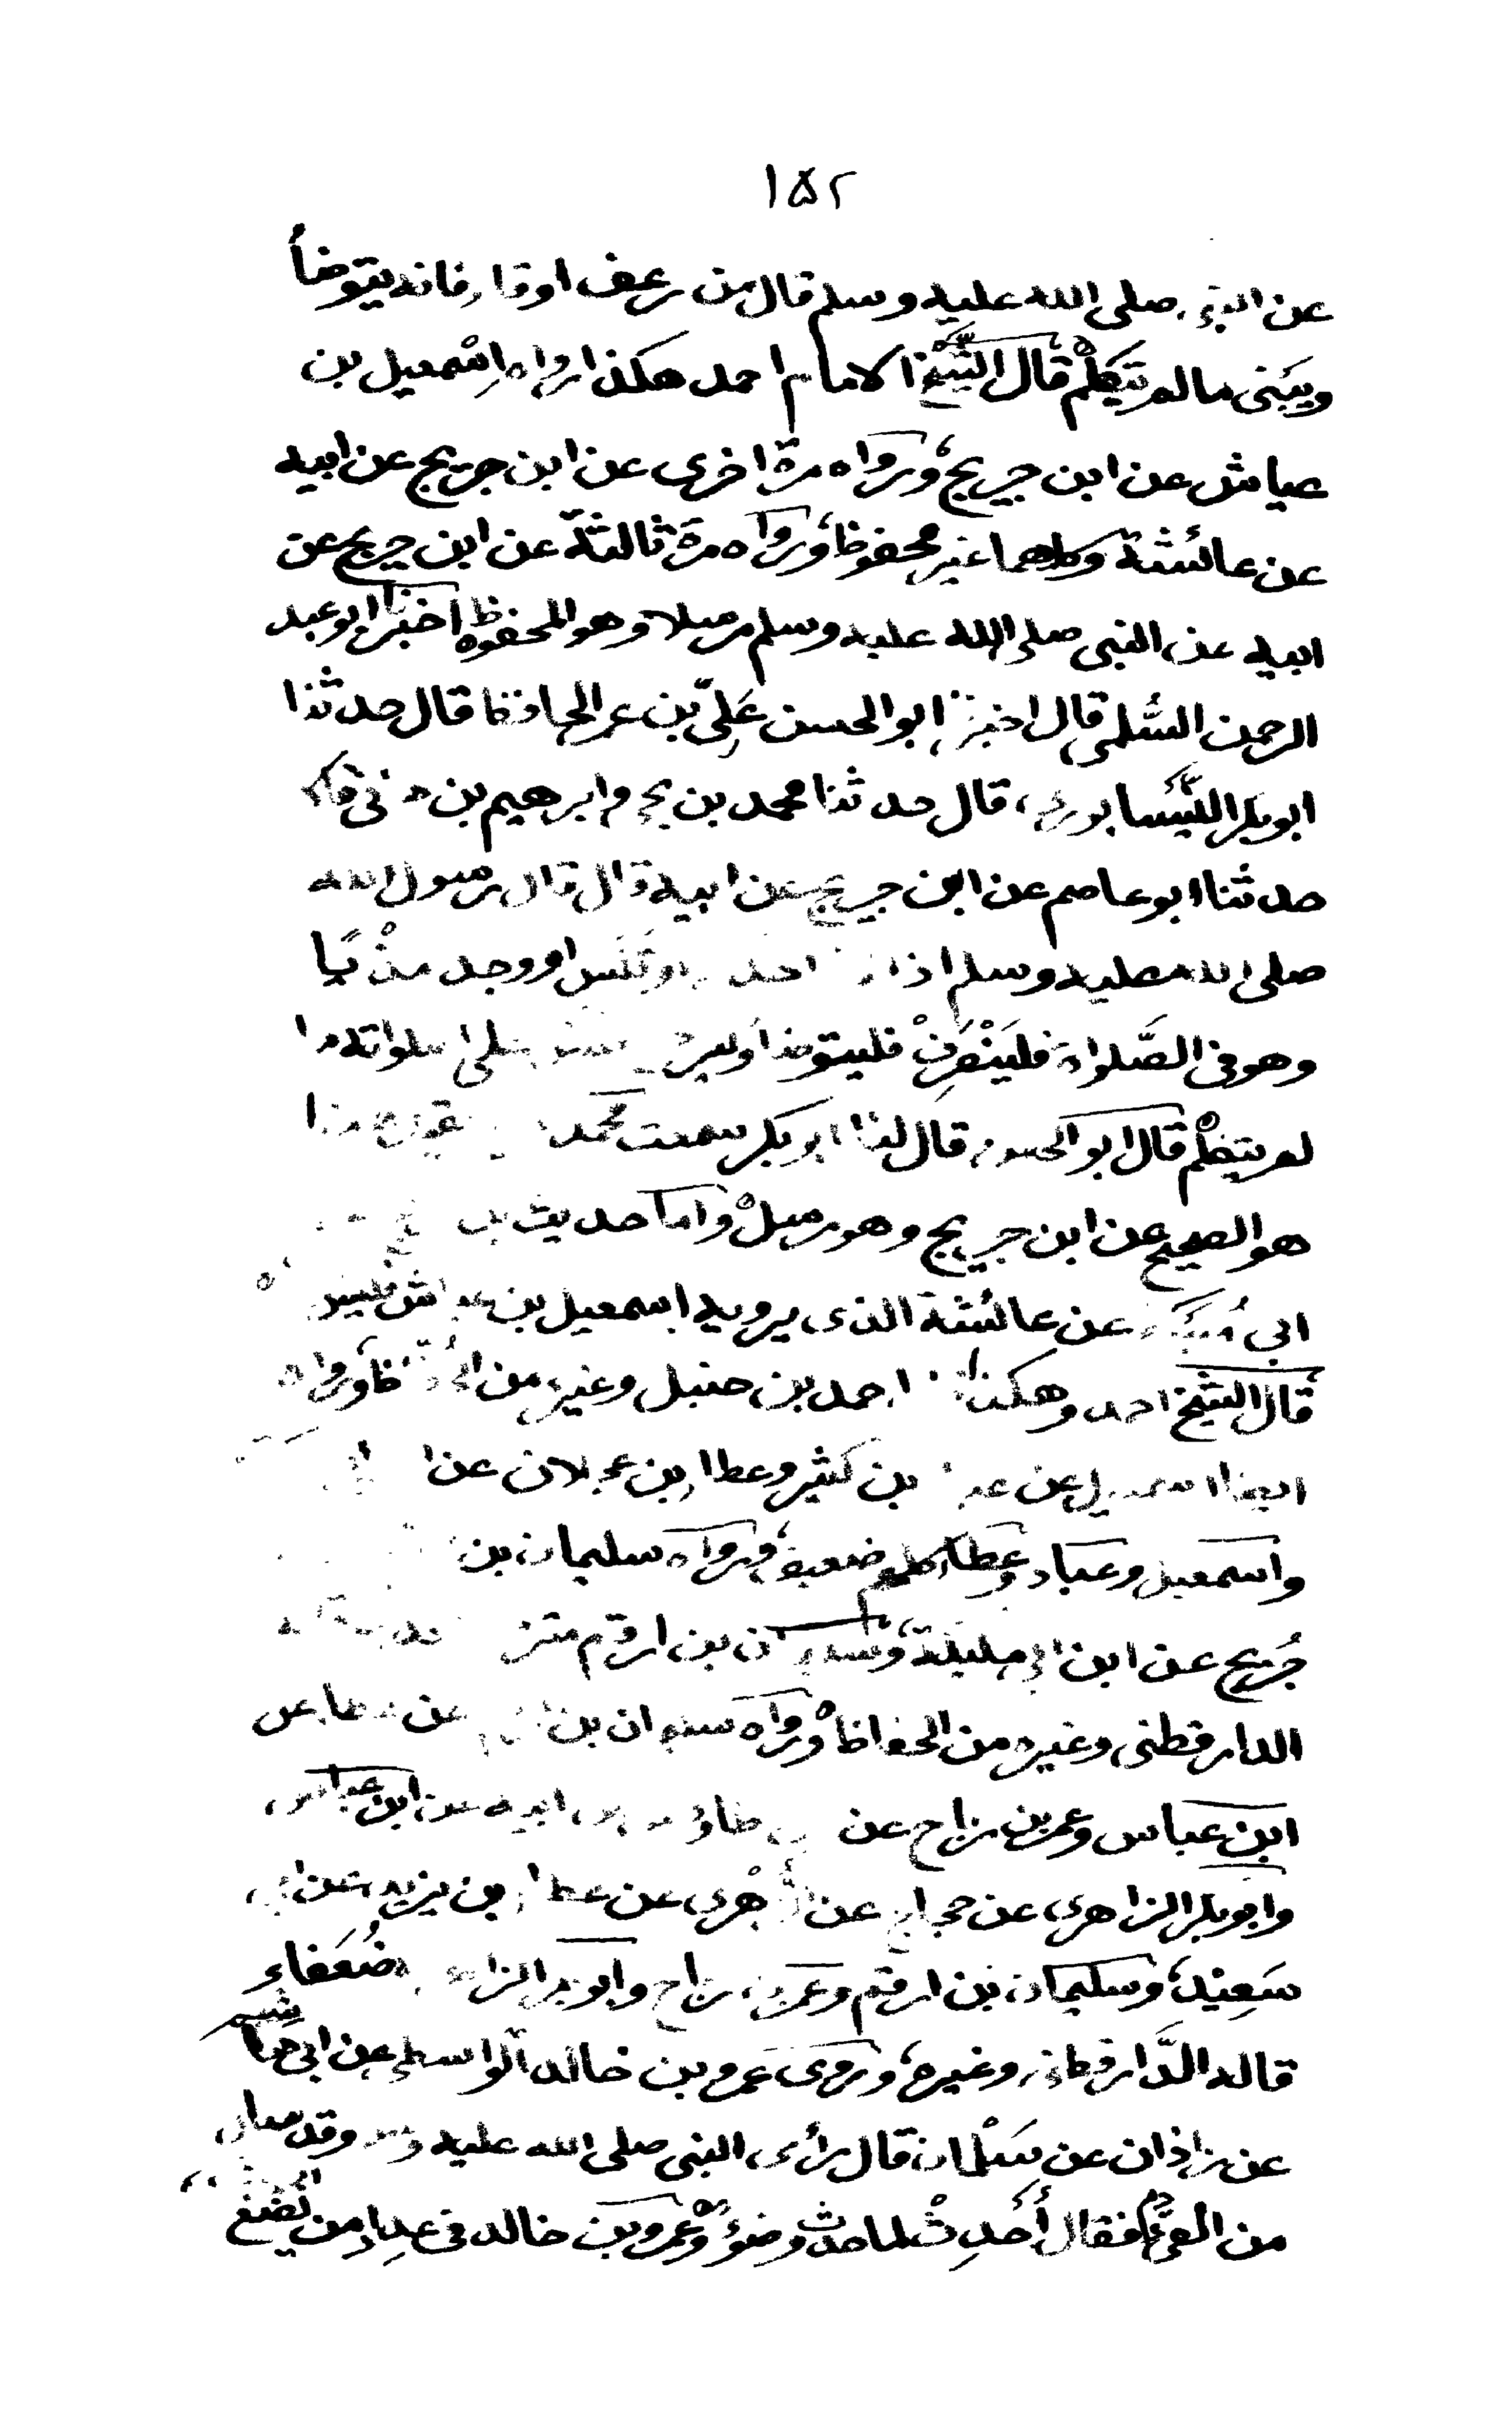 ١٥٢
عن النبي صلى الله عليه وسلم قال من رعف او قاء فانه يتوضأ
ويبنى ما لم يتكلم قال الشيخ الامام احمد هكذا رواه اسمعيل بن
عياش عن ابن جريج ورواه مرة اخرى عن ابن جريج عن ابيه
عن عائشة وكلاهما غير محفوظ ورواه مرة ثالثة عن ابن جريج عن
ابيه عن النبى صلى الله عليه وسلم مرسلا وهو المحفوظ اخبرنا ابو عبد
الرحمن السلمى قال اخبرنا ابو الحسن علي بن عمر الحافظ قال حدثنا
ابو بكر النيسابورى قال حدثنا محمد بن يحيى وابرهيم بن
حدثنا ابو عاصم عن ابن جريج عن ابيه قال قال رسول الله
صلى الله عليه وسلم اذا احد او قلس او وجد مذيا
وهو فى الصلواة فلينصرف فليتوضأ على صلواته ما
لم يتكلم قال ابو الحسن قال لنا ابو بكر سمعت محمد بن يقول هذا
هو الصحيح عن ابن جريج وهو مرسل واما حديث
ابي مليكة عن عائشة الذى يرويه اسمعيل بن عياش فليس
قال الشيخ احمد وهكذا احمد بن حنبل وغيره من الحفاظ ورواه
ايضا اسمعيل عن عباد بن كثير وعطاء بن عجلان عن
واسمعيل وعباد وعطا كلهم ضعيف ورواه سليمان بن
جريج عن ابن ابى مليكة وسليمان بن ارقم
الدارقطنى وغيره من الحفاظ ورواه سليمان بن عن عطا عن
ابن عباس وعمر بن رباح عن طاؤس عن ابيه عن ابن عباس
وابو بكر الزاهرى عن حجاج عن الزهرى عن عطاء بن يزيد عن ابى
سعيد وسليمان بن ارقم وعمر بن رباح وابو بكر ضعفاء
قاله الدارقطنى وغيره وروى عمرو بن خالد الواسطى عن ابى هاشم
عن زاذان عن سلمان قال رأى النبى صلى الله عليه وقد سال
من فقال أحدث لما حدث وضؤ وعمرو بن خالد فى عداد من يضع